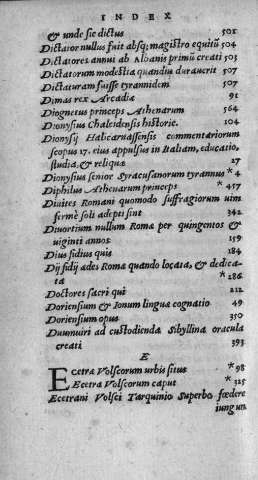 INDEX
& unde sic dictus 501
Dictator nullus fuit absq; magistro equitū 504
Dictatores annui ab Albanis primū creati 505
Dictatorum modestia quandiu durauerit 507
Dictaturam fuisse tyrannidem 507
Dimas rex Arcadiæ 91
Diognetus princeps Athenarum 564
Dionysius Chalcidensis historic. 104
Dionysij Halicarnassensis commentariorum
scopus 17. eius appulsus in Italiam, educatio,
studia, & reliqua 27
Dionysius senior Syracusanorum tyrannus * 4
Diphilus Athenarum princeps * 457
Diuites Romani quomodo suffragiorum uim
fermè soli adepti sint 342
Diuortium nullum Romæ per quingentos &
uiginti annos 159
Dius fidius quis 184
Dij fidij ædes Romæ quando locata, & dedica-
ta * 286
Doctores sacri qui 212
Doriensium & Ionum lingua cognatio 49
Doriensium opus 350
Duumuiri ad custodienda Sibyllina oracula
creati 393
E
Ecetra Volscorum urbis situs * 98
Ecetra Volscorum caput * 325
Ecetrani Volsci Tarquinio Superbo fœdere
iungun